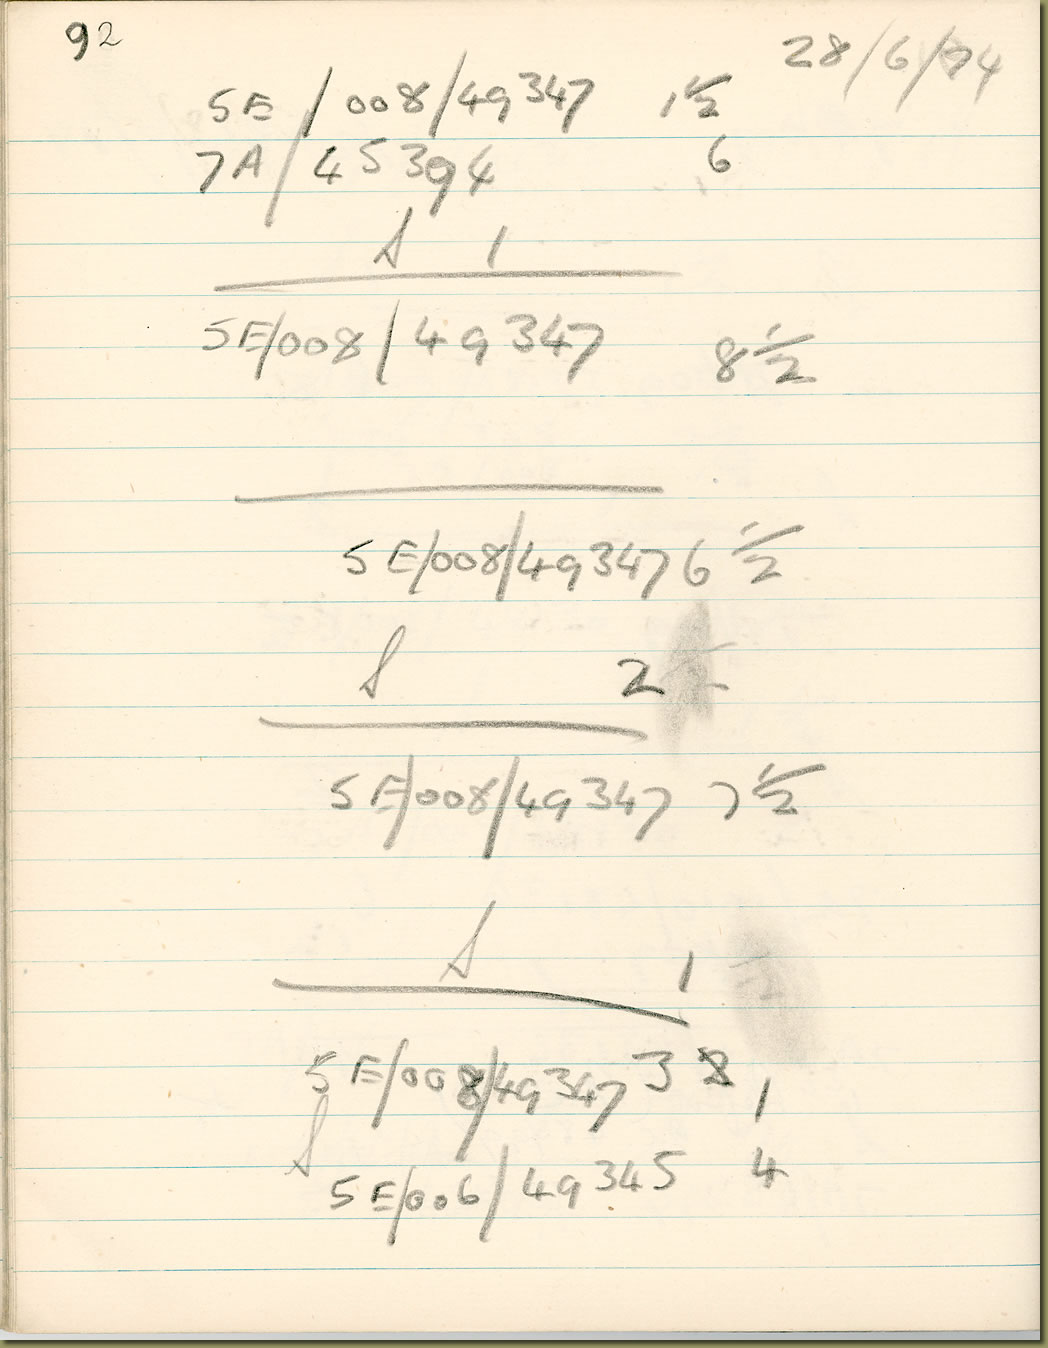 92
28/6/74
5E/008/49347 1½
7A/45394 6
S 1
5E/008/49347 8½
5E/008/49347 6½
S 2
5E/008/49347 7½
S 1
5E/008/49347 3
S 1
5E/006/49345 4